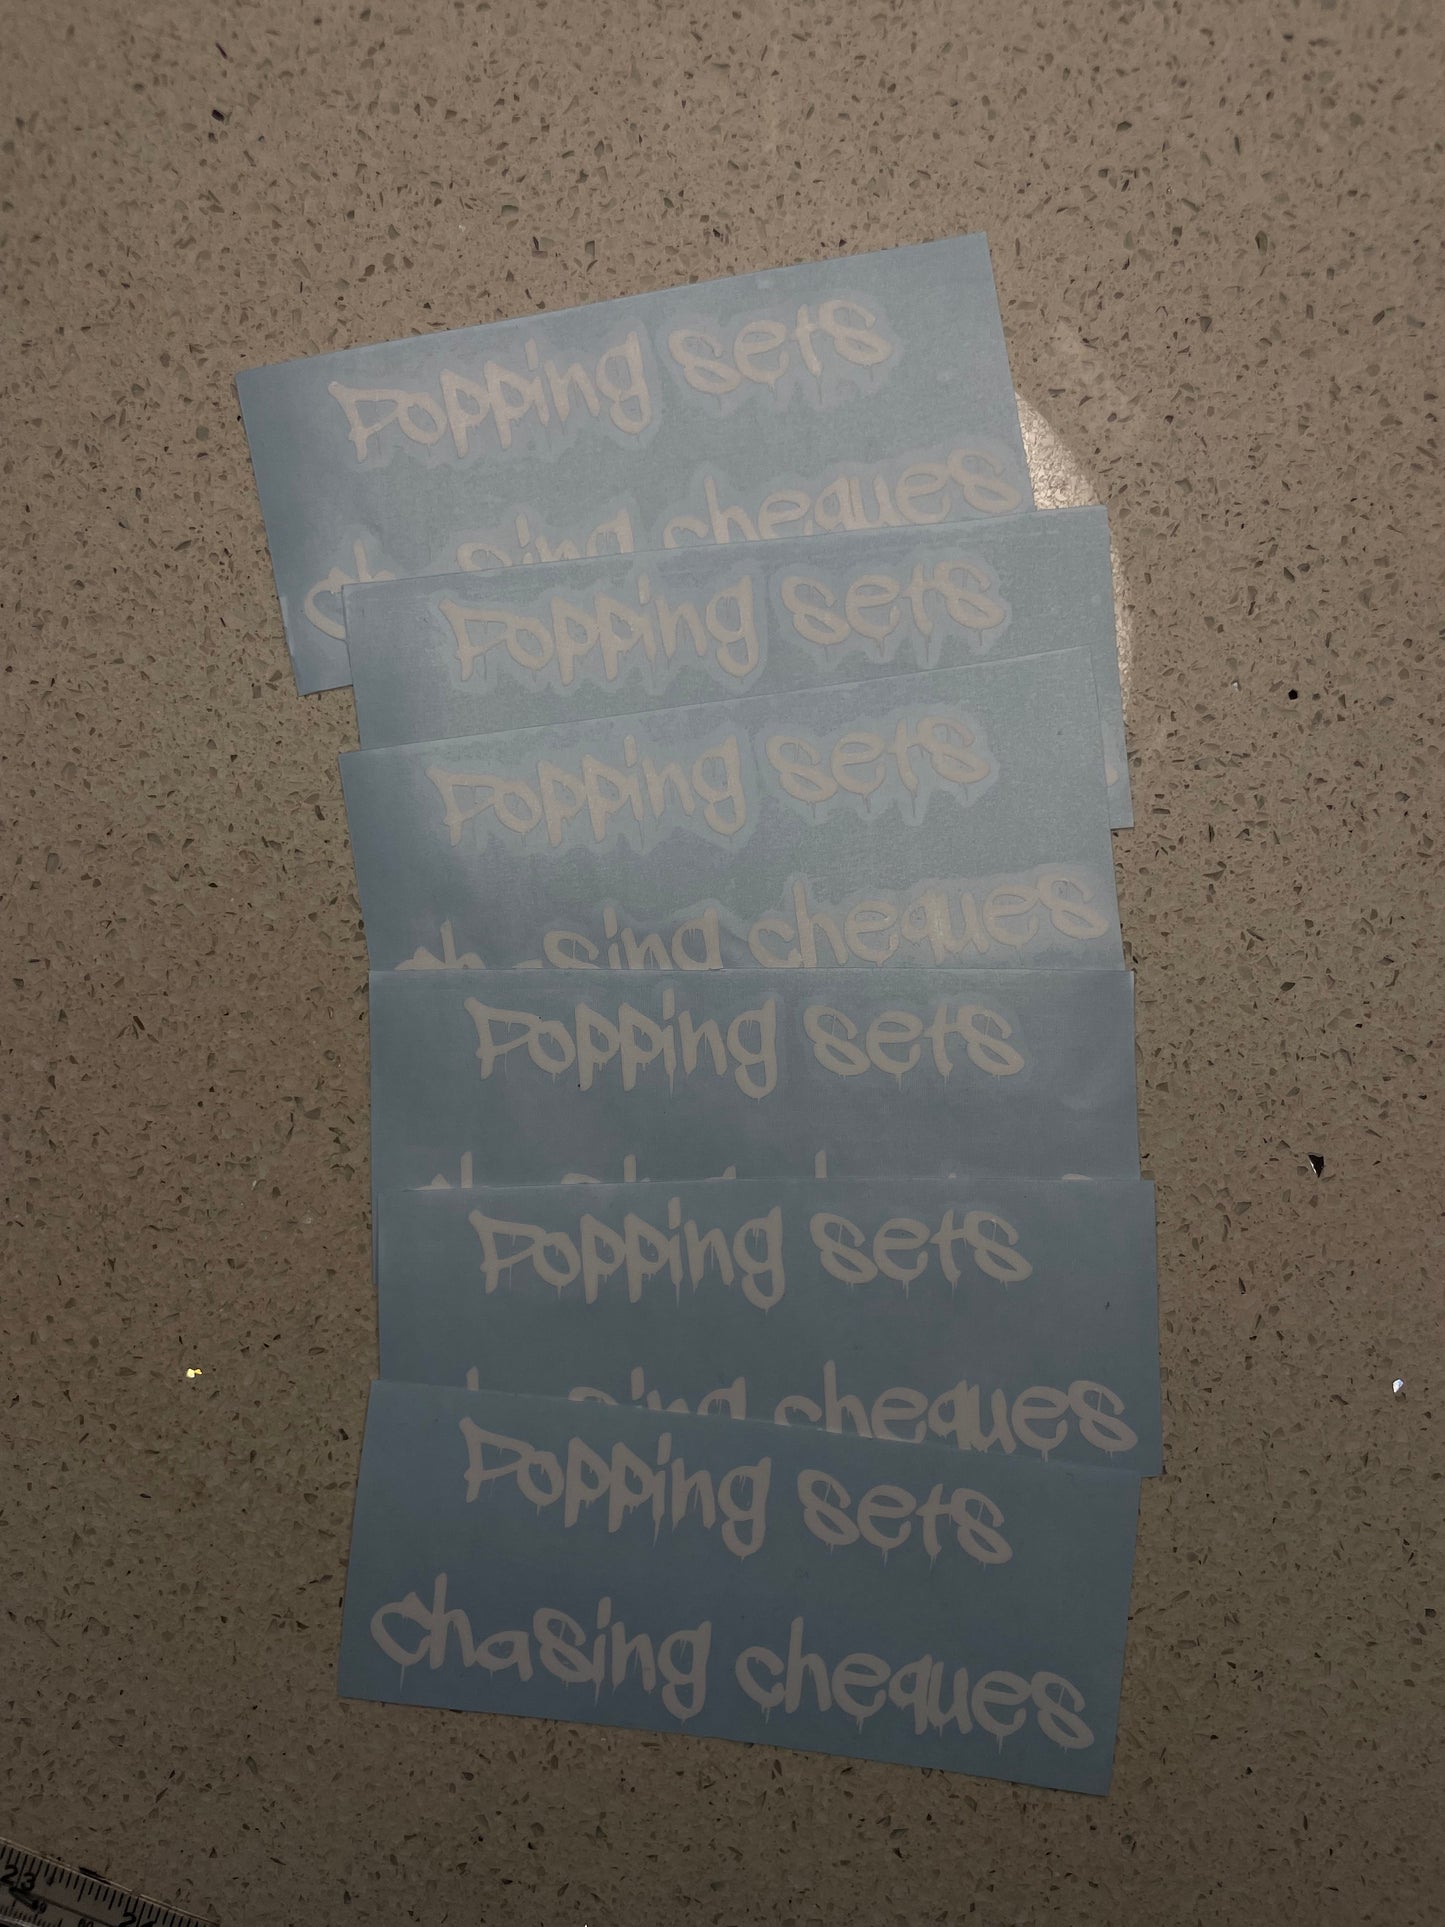 Popping sets
chasing cheques
Popping sets
Popping sets
chasing cheques
Popping sets
Popping sets
chasing cheques
Popping sets
chasing cheques
23